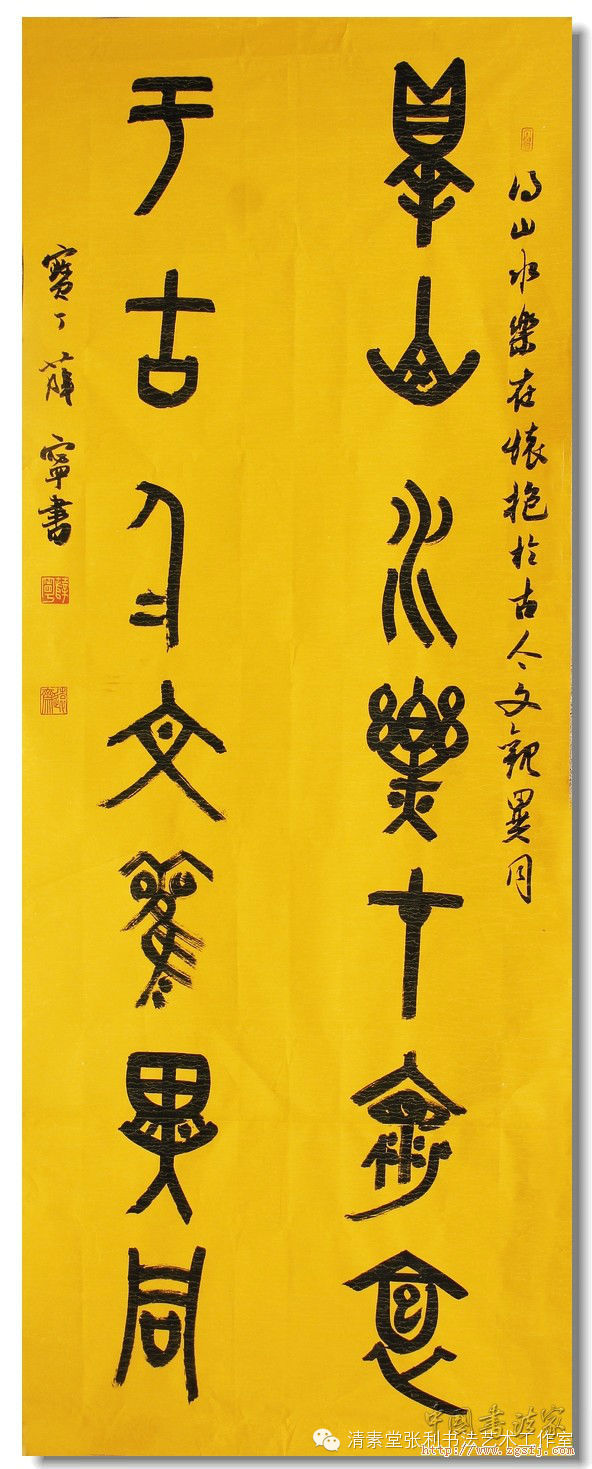 得山水樂在懷抱於古今文觀異同
得山水樂在懷抱
于古今文觀異同
寶丁薛寧書
中国书法家
清素堂张利书法艺术工作室
http://www.zgsfj.com